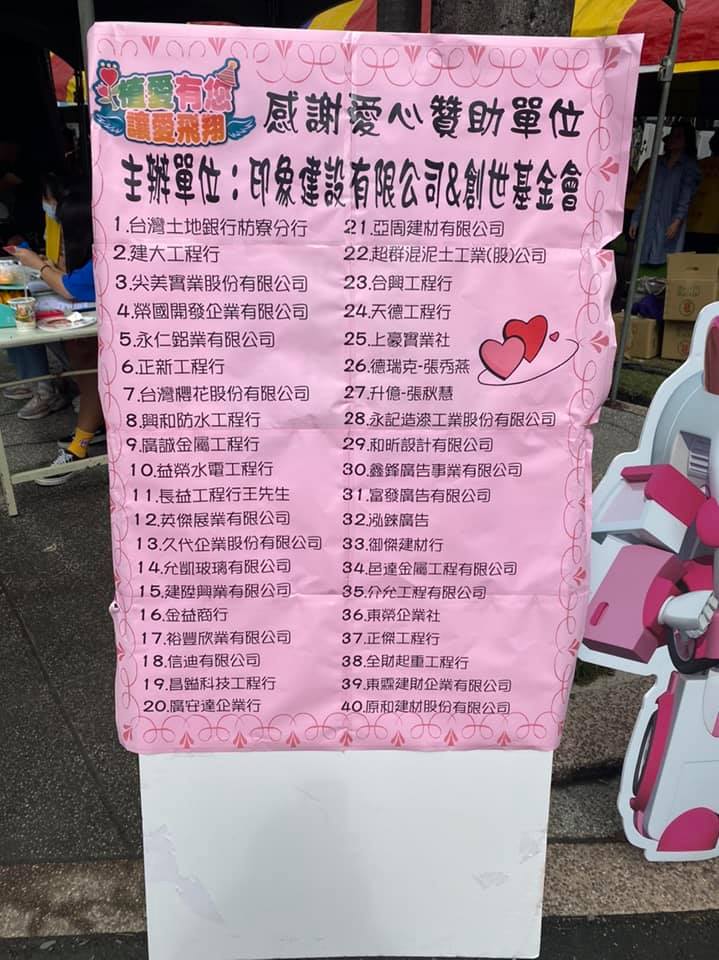 植愛有您
讓愛飛翔
感謝愛心贊助單位
主辦單位：印象建設有限公司&創世基金會
1.台灣土地銀行枋寮分行
2.建大工程行
3.尖美實業股份有限公司
4.榮國開發企業有限公司
5.永仁鋁業有限公司
6.正新工程行
7.台灣櫻花股份有限公司
8.興和防水工程行
9.廣誠金屬工程行
10.益榮水電工程行
11.長益工程行王先生
12.英傑展業有限公司
13.久代企業股份有限公司
14.允凱玻璃有限公司
15.建陞興業有限公司
16.金益商行
17.裕豐欣業有限公司
18.信迪有限公司
19.昌鎰科技工程行
20.廣安達企業行
21.亞周建材有限公司
22.超群混泥土工業(股)公司
23.合興工程行
24.天德工程行
25.上豪實業社
26.德瑞克-張秀燕
27.升億-張秋慧
28.永記造漆工業股份有限公司
29.和昕設計有限公司
30.鑫鋒廣告事業有限公司
31.富發廣告有限公司
32.泓錸廣告
33.御傑建材行
34.邑達金屬工程有限公司
35.介允工程有限公司
36.東榮企業社
37.正傑工程行
38.全財起重工程行
39.東霖建財企業有限公司
40.原和建材股份有限公司